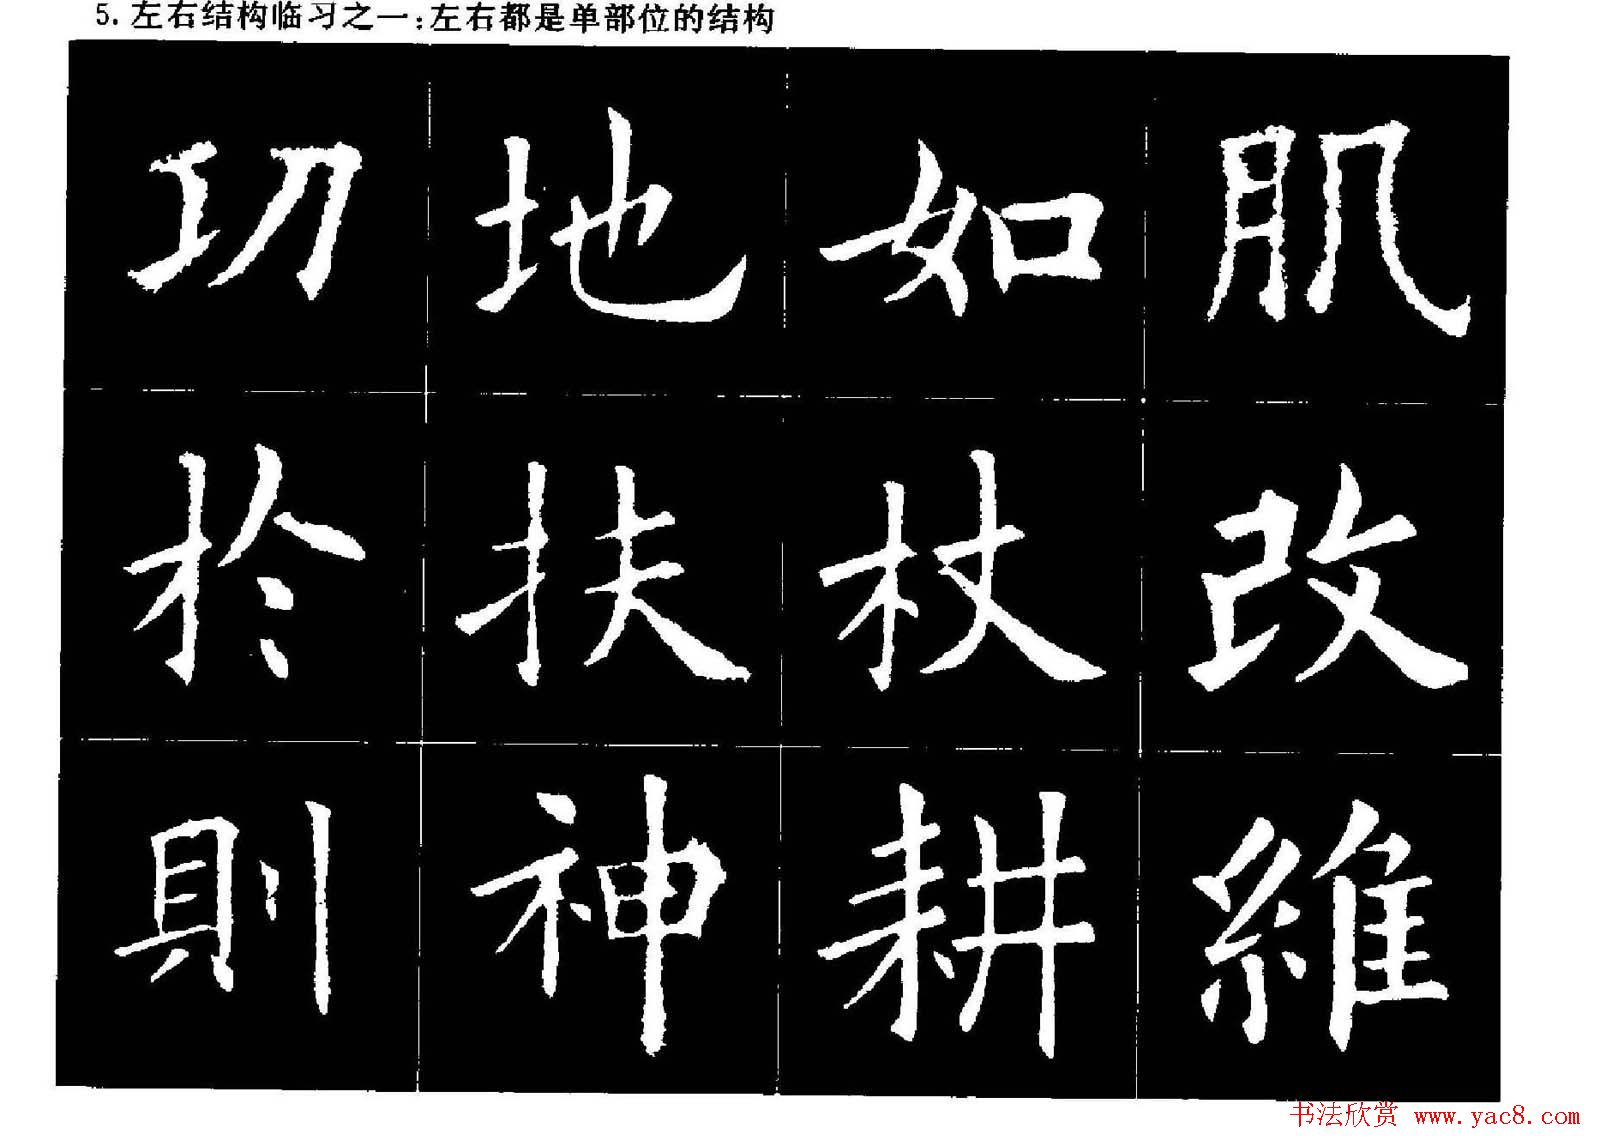 5.左右结构临习之一:左右都是单部位的结构
功 地 如 肌
於 扶 杖 改
則 神 耕 維
书法欣赏 www.yac8.com